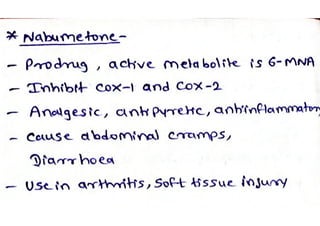 * Nabumetone -
- Prodrug, active metabolite is 6-MNA
- Inhibit COX-1 and COX-2
- Analgesic, antipyretic, antiinflammatory
- Cause abdominal cramps,
Diarrhoea
- Use in arthritis, soft tissue injury